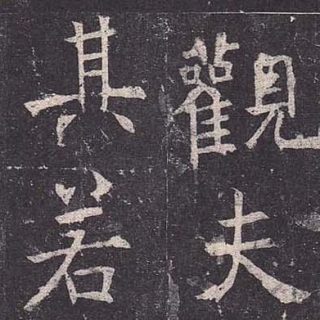 觀夫
其若